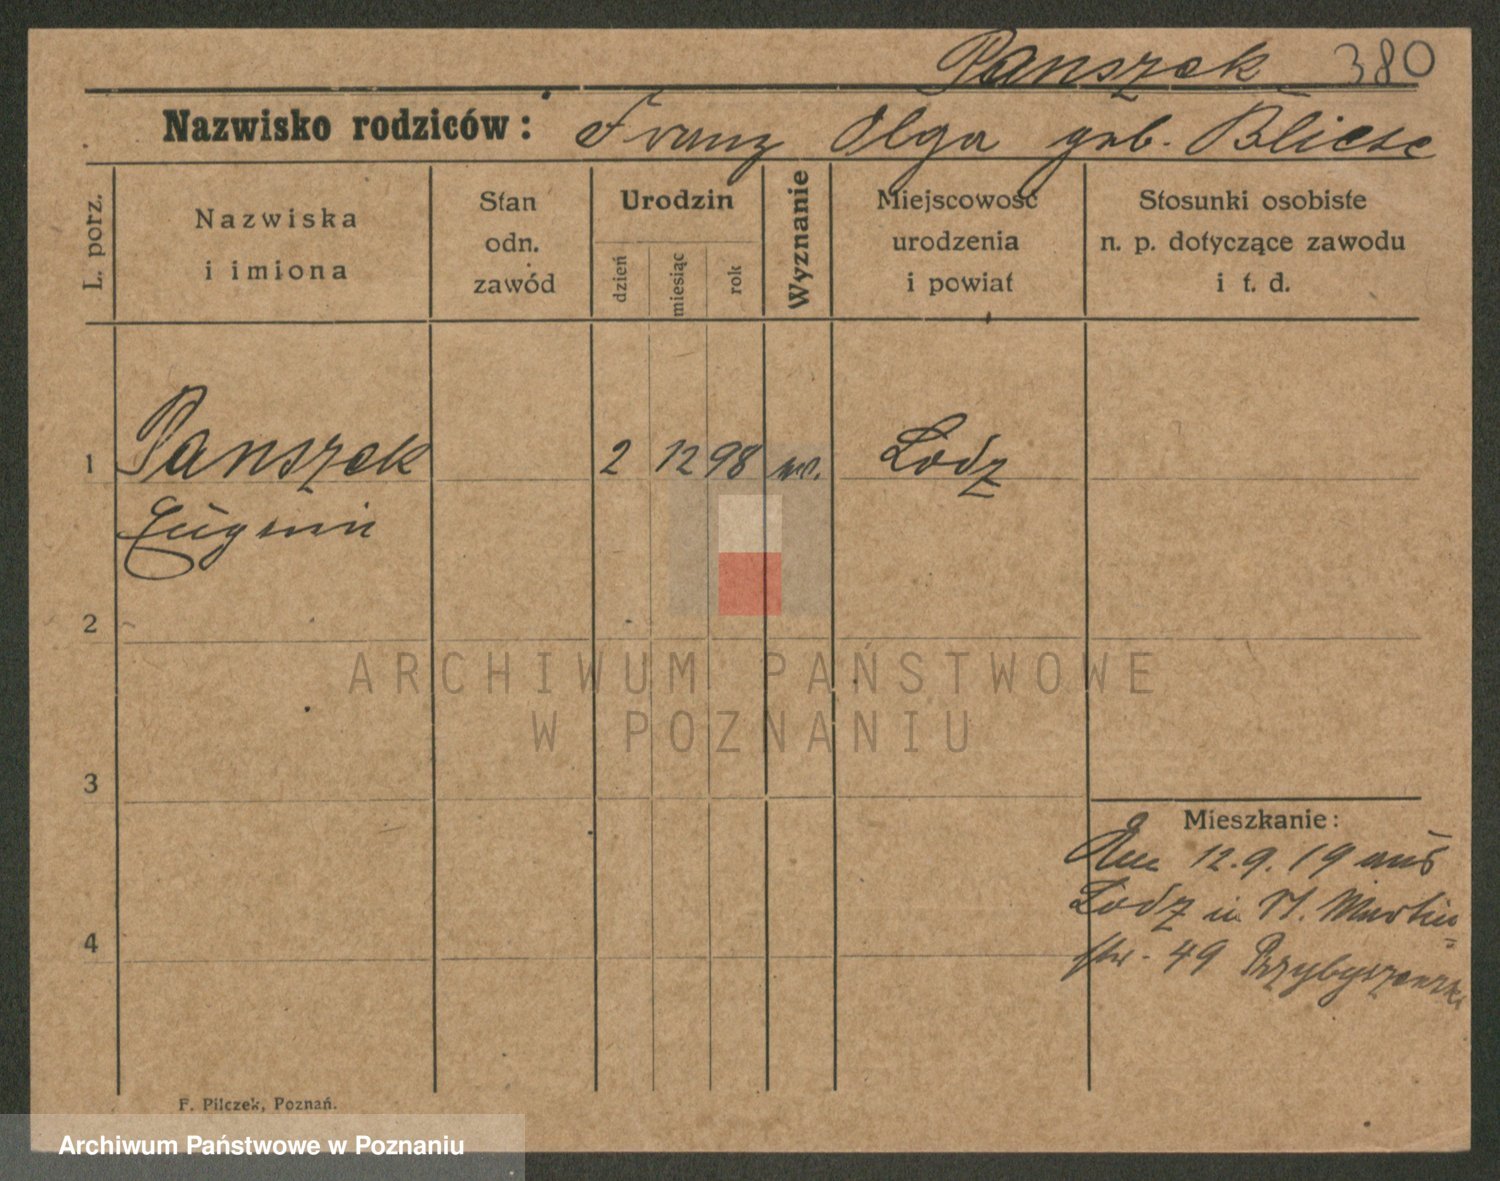 Panszek 380
Nazwisko rodziców: Franz Olga geb. Bliese
L. porz.
Nazwiska
i imiona
Stan
odn.
zawód
Urodzin
dzień
miesiąc
rok
Wyznanie
Miejscowość
urodzenia
i powiat
Stosunki osobiste
n. p. dotyczące zawodu
i t. d.
1 Panszek 2 12 98 Łódz
Eugenie
2
3
Mieszkanie:
Am 12.9.19 aus
Łódz in St. Martin=
4
str. 49 Przybyszewski
F. Pilczek, Poznań.
ARCHIWUM PAŃSTWOWE
W POZNANIU
Archiwum Państwowe w Poznaniu